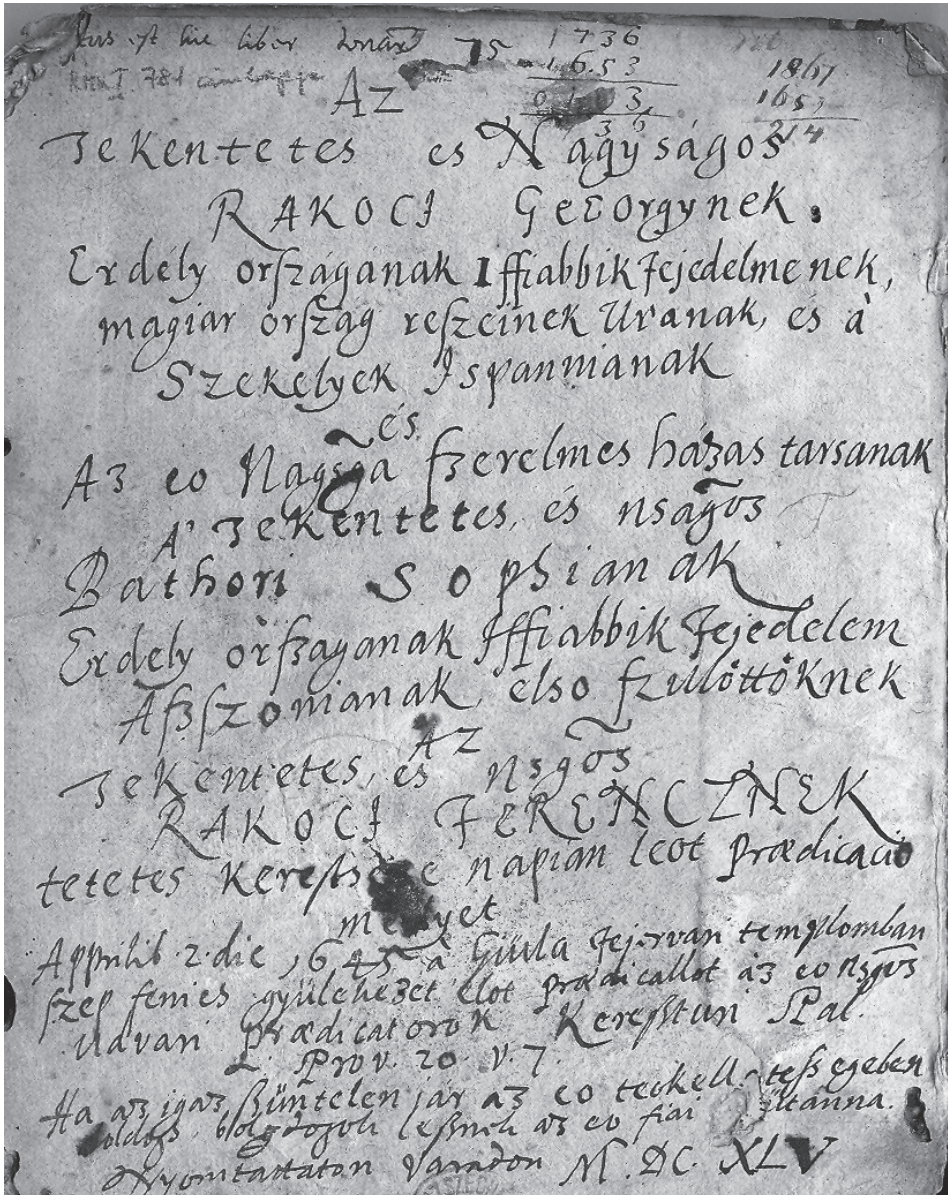 hic liber 75 1736
RMK I. 781 címlapja 1653 1867
Az 1653
36 214
Tekentetes es Nagÿságos
RAKOCI Geeorgynek.
Erdély orſzágának Iffiabbik Fejedelmenek,
magiar orſzag reſzeinek Uranak, és à
Szekelyek Ispannianak
és
Az eo Nagsga ſzerelmes házas tarsanak
A' Tekentetes, és nsagos
Bathori Sophianak
Erdely orſzaganak Iffiabbik Fejedelem
Aſzſzonianak, elso ſzulöttöknek
AZ
Tekentetes, és nsgos
RAKOCI FERENCZNEK
tetetes napian leot Prædicacio
Apprilib 2. die 1645 à Giula Fejervari templomban
ſzep fenies gyulekezet elot prædicallot az eo nsgos
Udvari Prædicatorok Kereſturi Pal.
Prov. 20. v. 7.
Ha az igaz jár az eo
az eo fiai utanna.
Nyomtattaton Varadon M. DC. XLV